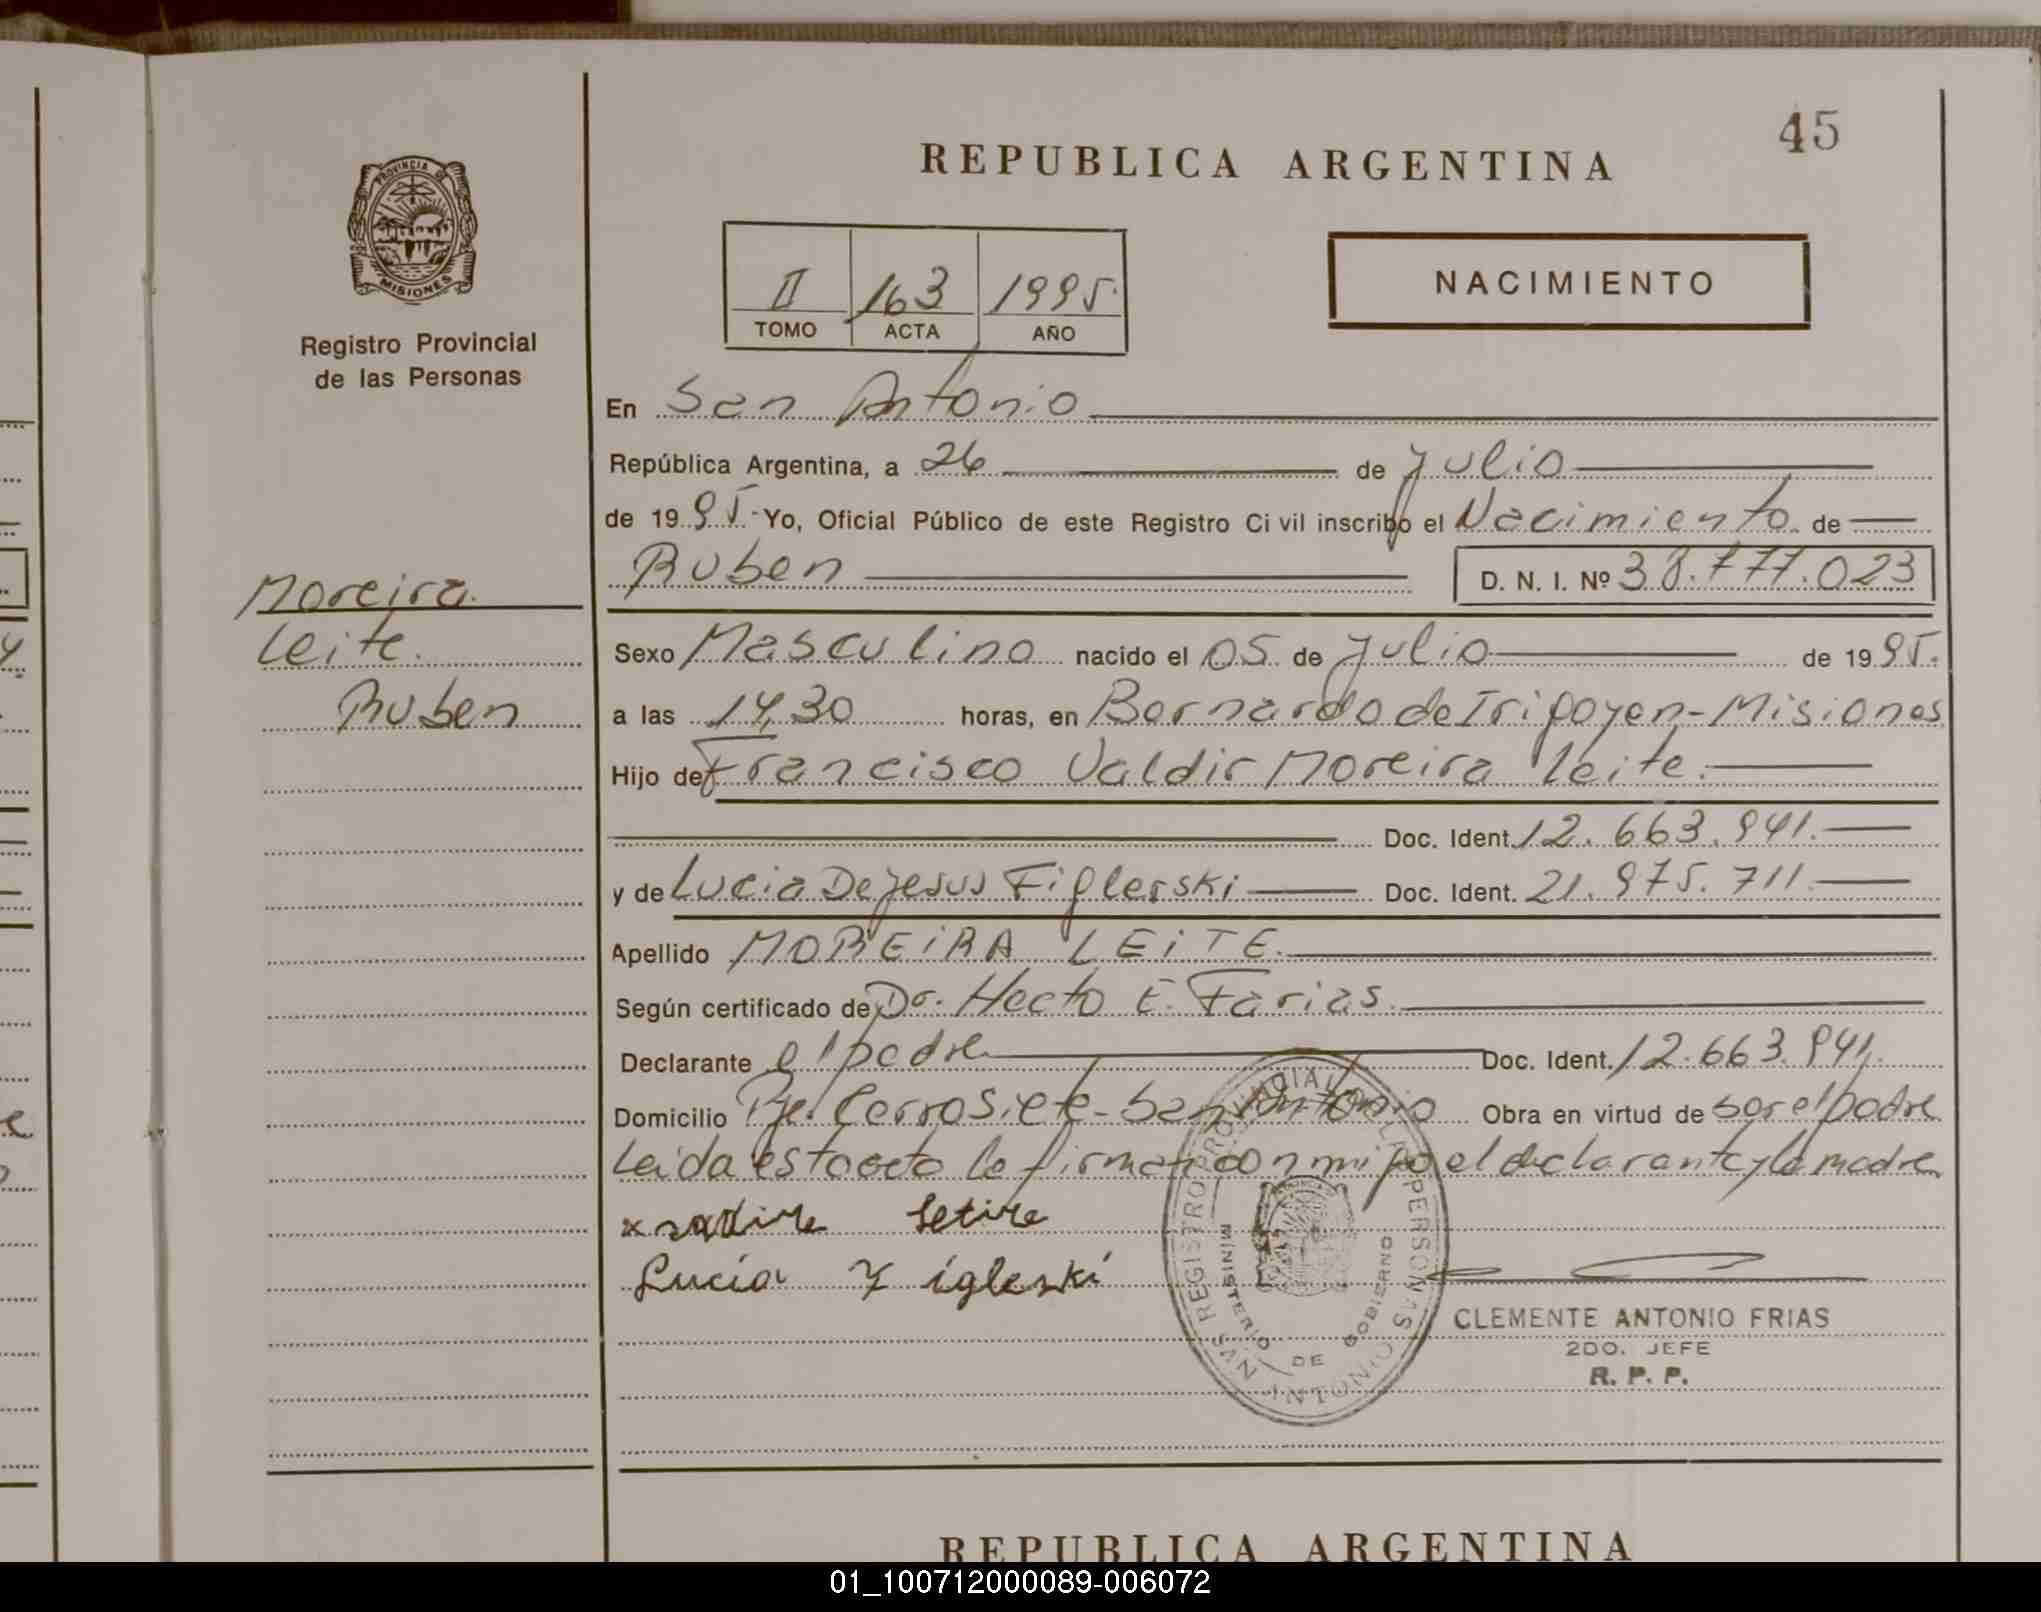 45
REPUBLICA ARGENTINA
PROVINCIA DE
MISIONES
Registro Provincial
de las Personas
II 163 1995.
TOMO ACTA AÑO
NACIMIENTO
En San Antonio
República Argentina, a 26 de Julio
de 1995.- Yo, Oficial Público de este Registro Civil inscribo el Nacimiento de
Ruben D. N. I. Nº 38.777.023
Moreira
Leite.
Ruben
Sexo Masculino nacido el 05 de Julio de 1995.
a las 14,30 horas, en Bernardo de Irigoyen-Misiones
Hijo de Francisco Valdir Moreira Leite.
Doc. Ident. 12.663.941.
y de Lucia De Jesus Figlerski Doc. Ident. 21.975.711.
Apellido MOREIRA LEITE.
Según certificado de Dr. Hecto E. Farias.
Declarante el padre Doc. Ident. 12.663.941.
Domicilio Pje. Cerro Siete-San Antonio Obra en virtud de ser el padre
Leida esta acta la firman con migo el declarante y la madre
Lucia Figleski
REGISTRO PROVINCIAL DE LAS PERSONAS
MINISTERIO DE GOBIERNO
SAN ANTONIO
CLEMENTE ANTONIO FRIAS
2DO. JEFE
R. P. P.
REPUBLICA ARGENTINA
01_100712000089-006072